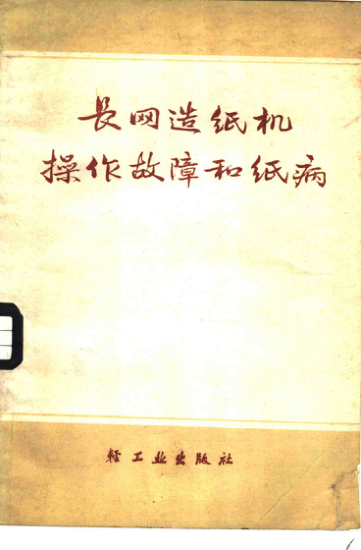 長网造纸机
操作故障和纸病
轻工业出版社